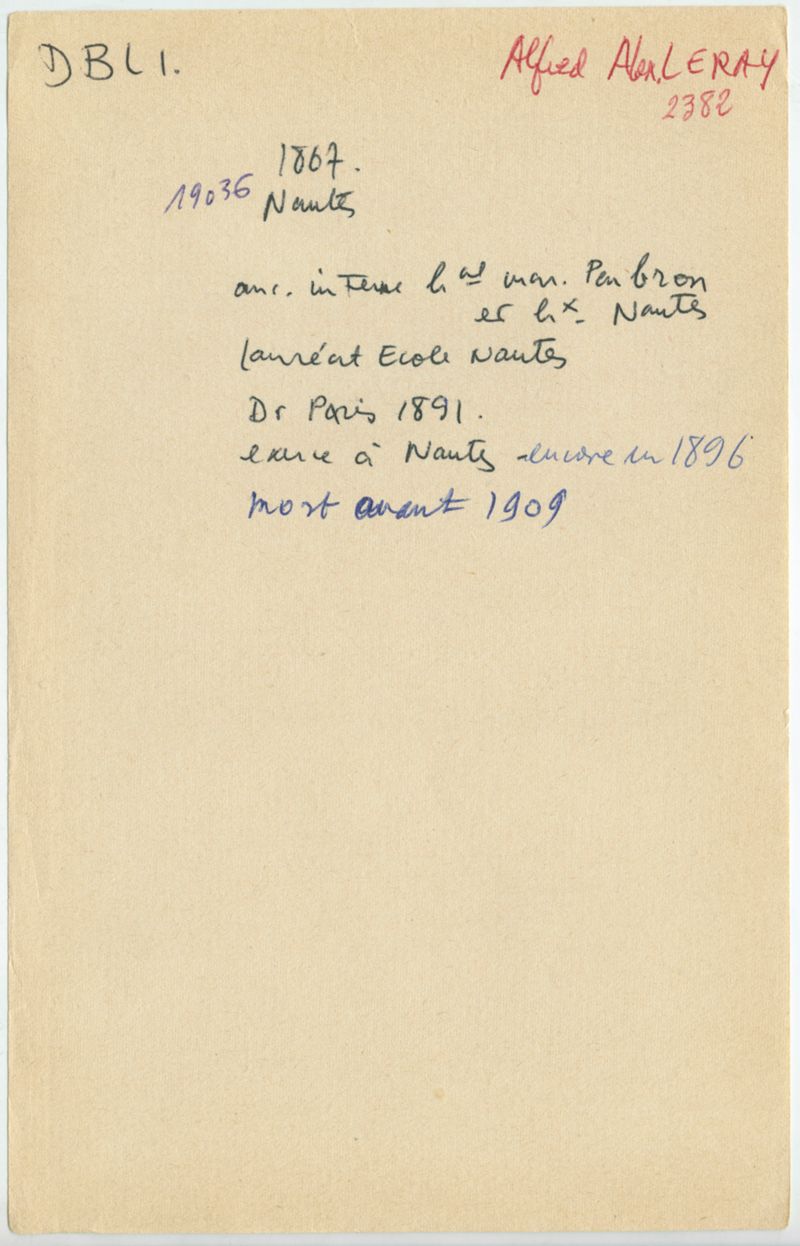 DBL1.
Alfred Alex. LERAY
2382
1867.
19036
Nantes
anc. interne hal mar. Penbron
et hx. Nantes
lauréat Ecole Nantes
Dr Paris 1891.
exerce à Nantes - encore en 1896
mort avant 1909